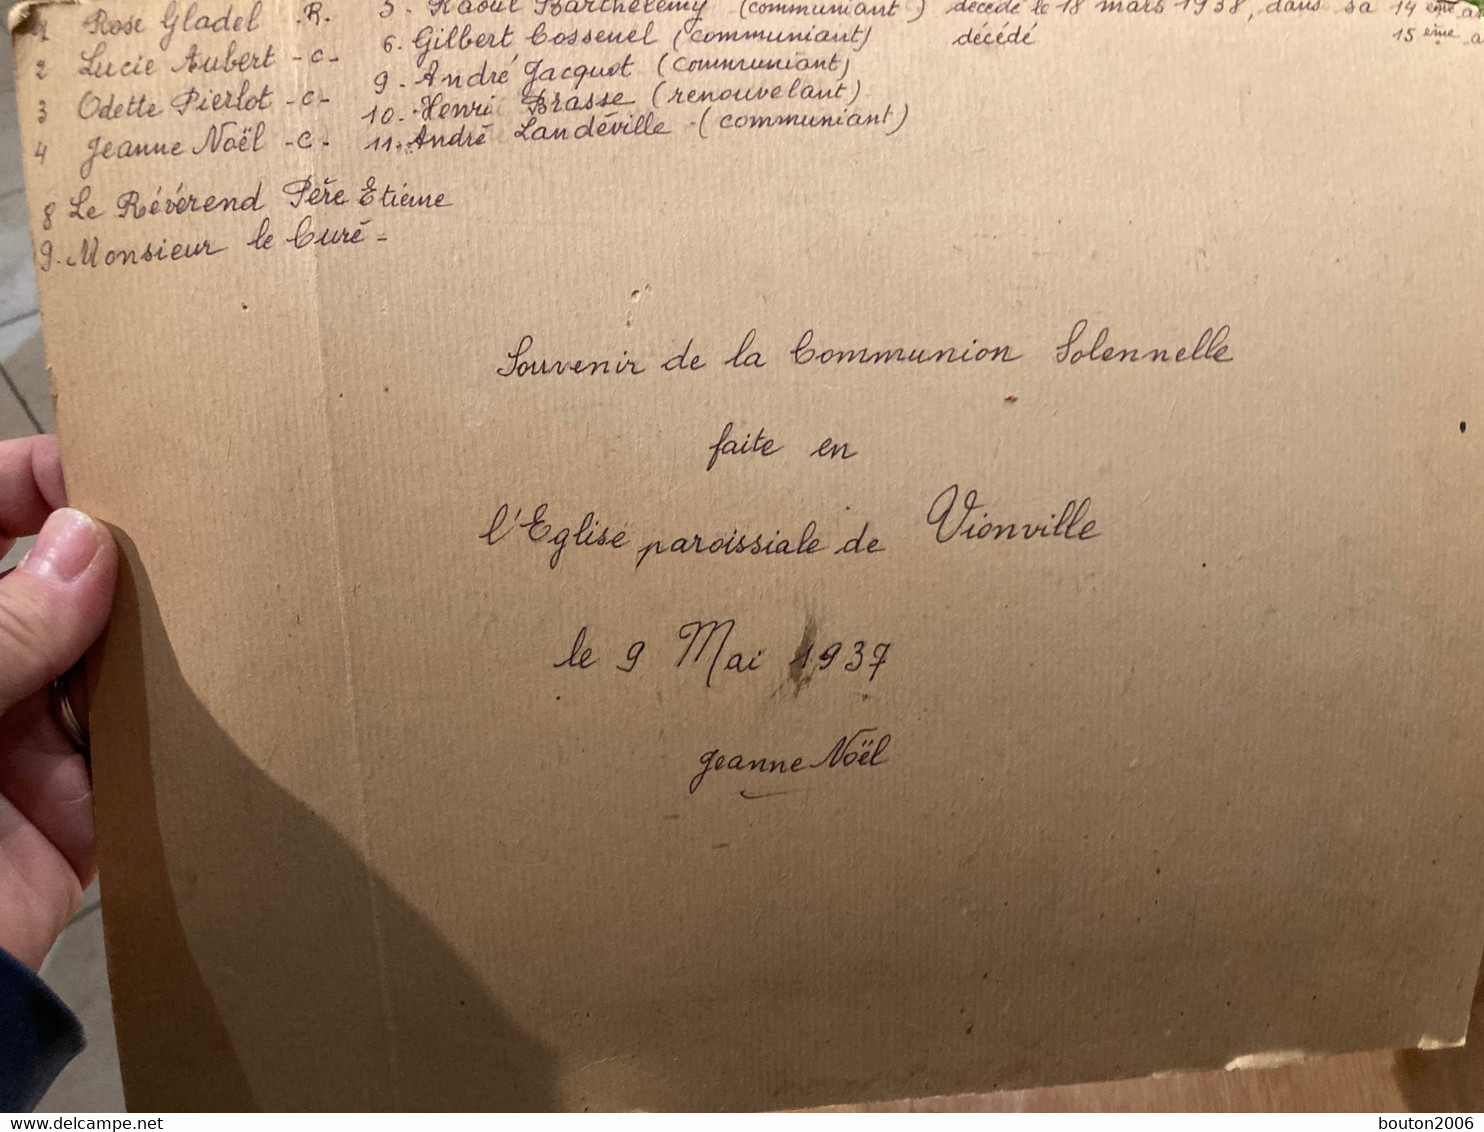 1 Rose Gladel -R.
2 Lucie Aubert -c-
3 Odette Pierlot -c-
4 Jeanne Noël -c-
5. Raoul Barthélemy (communiant) décédé le 18 mars 1938, dans sa 14ème
6. Gilbert Cossenel (communiant) décédé 15ème
9. André Jacquot (communiant)
10. Henri Brasse (renouvelant)
11. André Landéville (communiant)
8 Le Révérend Père Etiéme
9. Monsieur le Curé -
Souvenir de la Communion Solennelle
faite en
l'Eglise paroissiale de Vionville
le 9 Mai 1937
Jeanne Noël
bouton2006